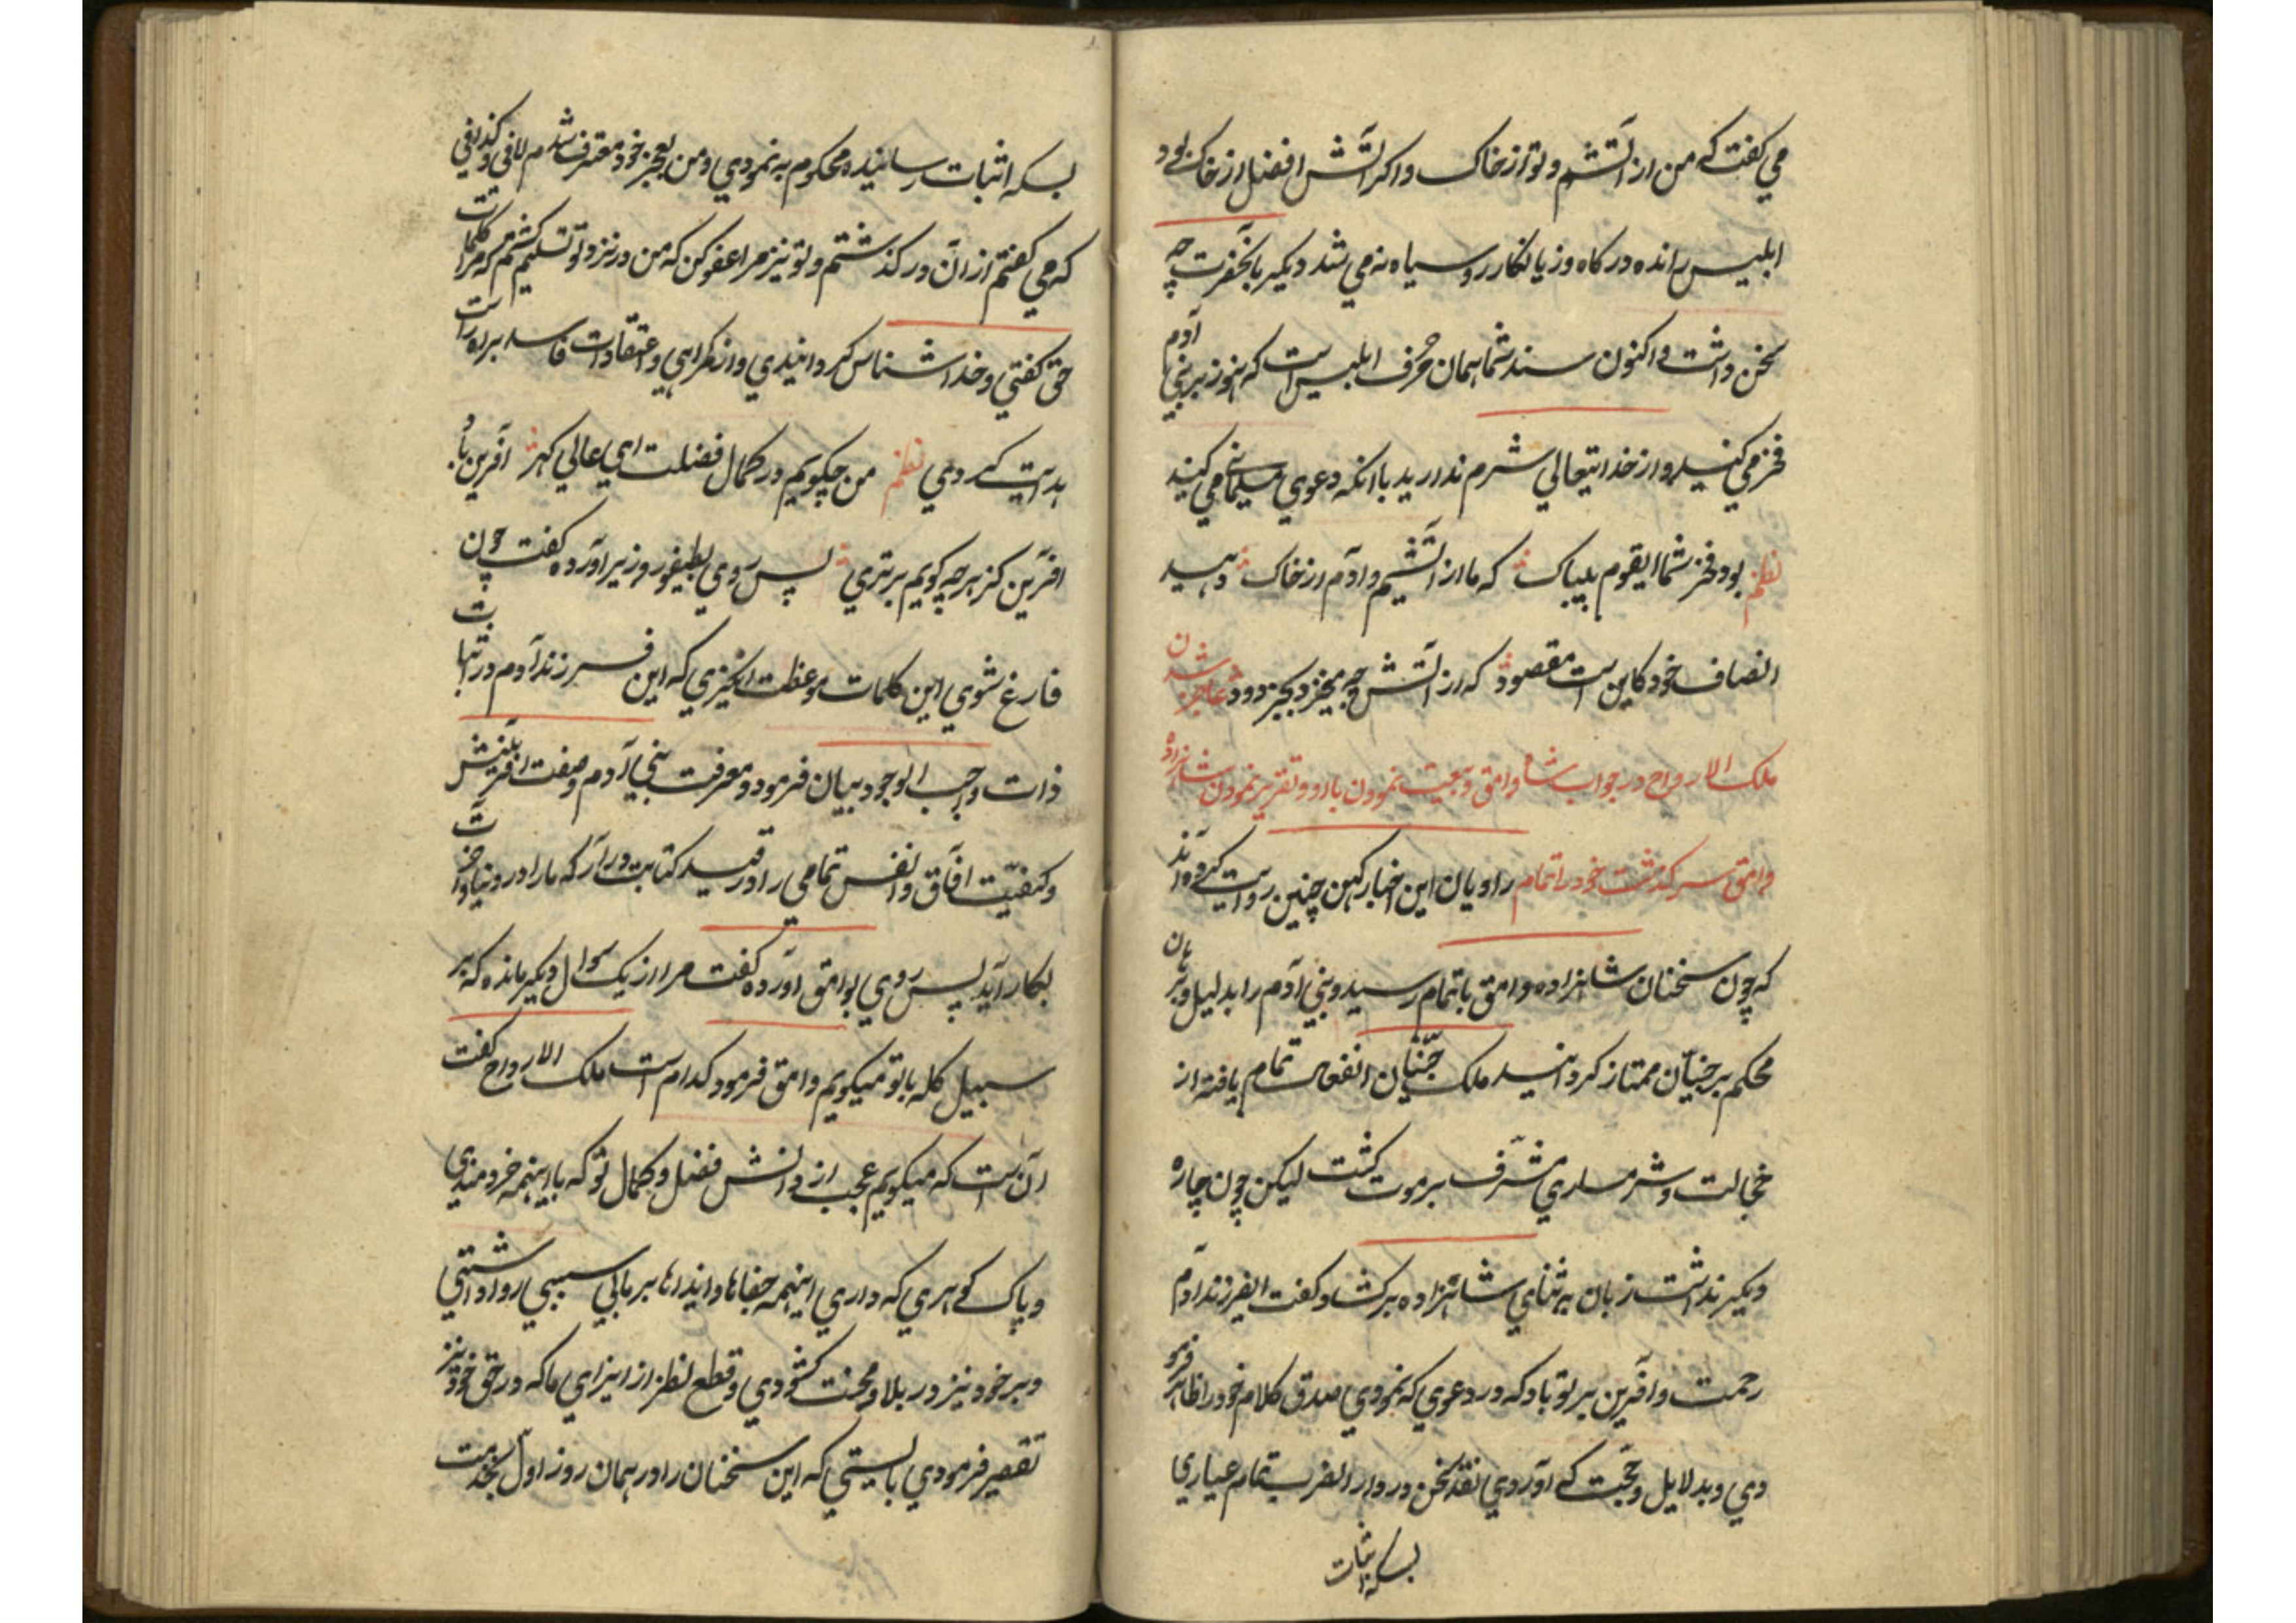 می کفت که من از آتشم و تو از خاک و اکر آتش افضل از خاک بود
ابلیس رانده درکاه و زیانکار رو سیاه نمی شد دیکر بآنحضرت چه
سخن داشت و اکنون سند شما همان حرف ابلیس است که هنوز بر بنی آدم
فخر می کنید و از خدایتعالی شرم ندارید با انکه دعوی سلیمانی می کنید
نظم بود فخر شما ایقوم بیباک که ما از آتشیم و آدم از خاک دهید
انصاف خود کاین است مقصود که از آتش چه میخیزد بجز دود عاجز شدن
ملک الارواح در جواب شاه وامق و بیعت نمودن با او و تقریر نمودن شاهزاده
وامق سرکذشت خود را تمام راویان این اخبار کهن چنین روایت کرده اند
که چون سخنان شاهزاده وامق باتمام رسید و بنی آدم را بدلیل و برهان
محکم بر جنیان ممتاز کردانید ملک جنیان انفعال تمام یافته از
خجالت و شرمساری مشرف بر موت کشت لیکن چون چاره
دیکر نداشت زبان بر ثنای شاهزاده برکشاد و کفت ایفرزند آدم
رحمت و آفرین بر تو باد که در دعوی که نمودی صدق کلام خود را ظاهر فرمو
دی و بدلایل و حجت که آوردی نقد سخن در دار الضرب تمام عیاری
بسکه اثبات
بسکه اثبات رسانیده محکوم به نمودی و من بعجز خود معترف شدم لافی و کذافی
که می کفتم از آن درکذشتم و تو نیز مرا عفو کن که من در نزد تو تسلیم کشتم که مرا کلمات
حق کفتی و خدا شناس کردانیدی و از کمراهی و اعتقادات فاسد براه راست
هدایت کردی نظم من چکویم در کمال فضلت ای عالی کهر آفرین باد
افرین کز هرچه کویم برتری پس روی بطیفور وزیر آورده کفت چون
فارغ شوی این کلمات موعظت انکیزی که این فرزند آدم در اثبات
ذات واجب الوجود بیان فرمود و معرفت بنی آدم و صفت افرینش
و کیفیت افاق و انفس تمامی را در قید کتابت درآر که ما را در دنیا و آخرت
بکار آید پس روی بوامق آورده کفت مرا از یک سوال دیکر مانده که بر
سبیل کله با تو میکویم وامق فرمود کدام است ملک الارواح کفت
آن است که میکویم عجب از دانش فضل و کمال تو که با اینهمه خردمندی
و پاک کوهری که داری اینهمه جفاها و ایذاها بر مابی سببی روا داشتی
و بر خود نیز در بلا و محنت کشودی و قطع نظر از ایزای ما که در حق خود نیز
تقصیر فرمودی بایستی که این سخنان را در همان روز اول بخدمت